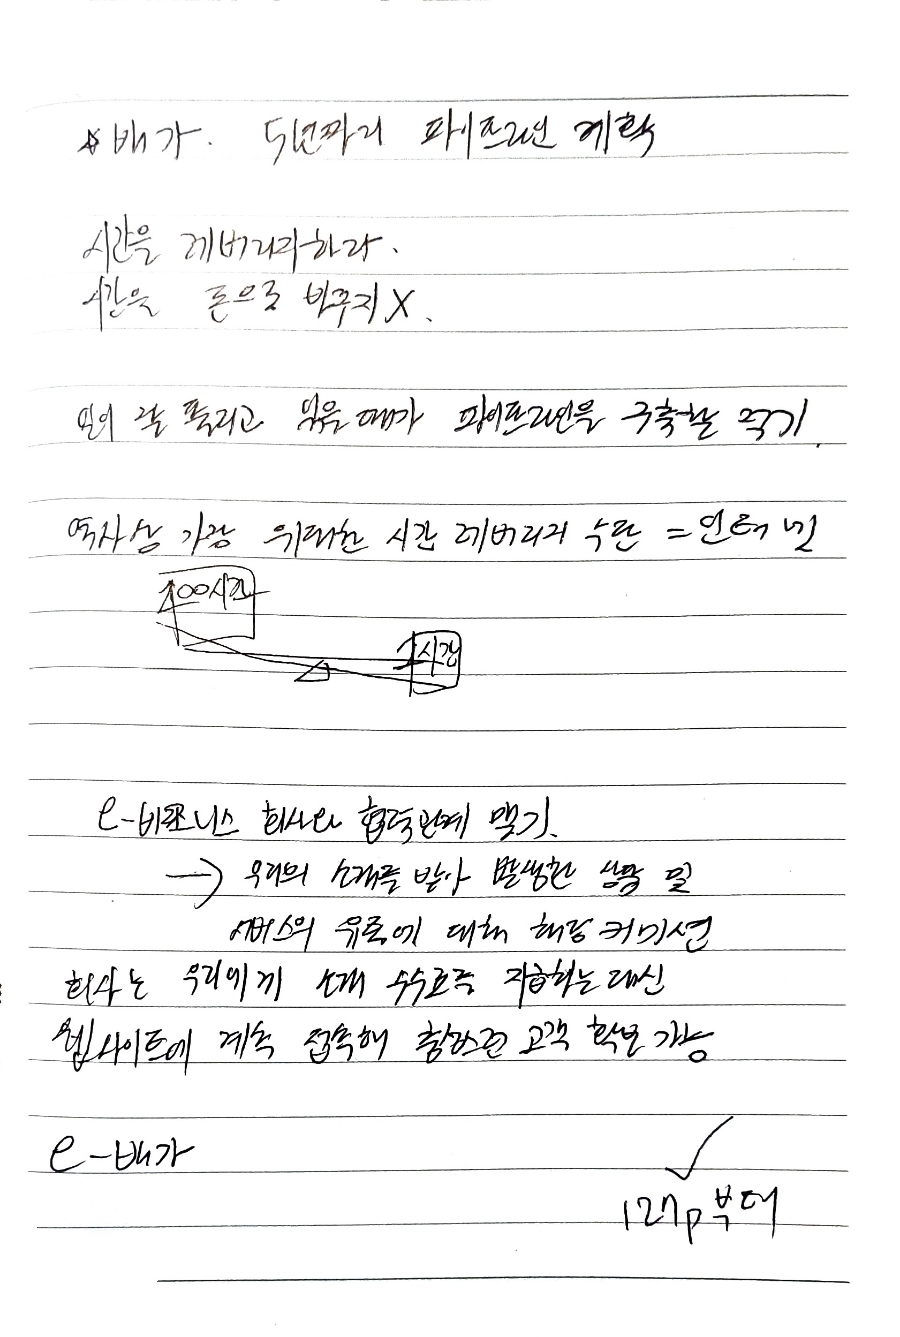 ☆배가. 5년짜리 파이프라인 계획
시간을 레버리지하라.
시간을 돈으로 바꾸지 X.
일이 잘 풀리고 있을때가 파이프라인을 구축할 적기.
역사상 가장 위대한 시간 레버리지 수단 = 인터넷
100시간
1시간
e-비즈니스 회사와 협력관계 맺기.
→ 우리의 소개를 받아 발생한 상품 및
서비스의 유통에 대해 해당 커미션
회사는 우리에게 소개 수수료를 지급하는 대신
웹사이트에 계속 접속해 충성스런 고객 확보 가능
e-배가
✓
127p부터